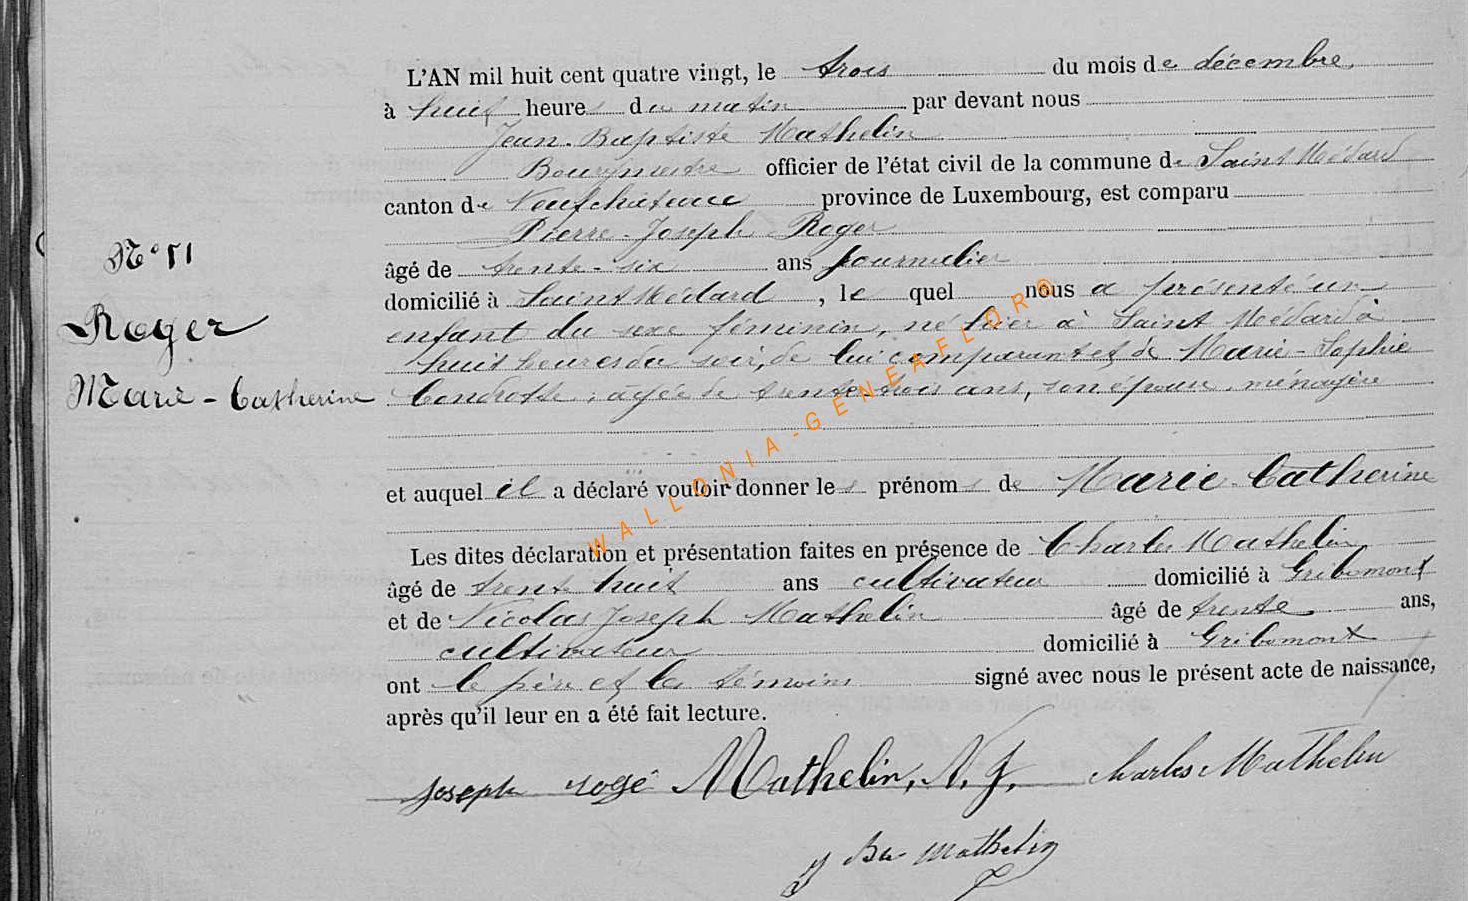 N° 51
Roger
Marie - Catherine
L'AN mil huit cent quatre vingt, le trois du mois de décembre
à huit heures du matin par devant nous
Jean-Baptiste Mathelin
Bourgmestre officier de l'état civil de la commune de Saint Médard
canton de Neufchateau province de Luxembourg, est comparu
Pierre-Joseph Roger
âgé de trente-six ans journalier
domicilié à Saint Médard, lequel nous a présenté un
enfant du sexe féminin, né hier à Saint Médard à
huit heures du soir, de lui comparant et de Marie-Sophie
Condrotte, agée de trente trois ans, son épouse, ménagère
et auquel il a déclaré vouloir donner les prénoms de Marie-Catherine
Les dites déclaration et présentation faites en présence de Charles Mathelin
âgé de trente huit ans cultivateur domicilié à Gribomont
et de Nicolas Joseph Mathelin âgé de trente ans,
cultivateur domicilié à Gribomont
ont le père et les témoins signé avec nous le présent acte de naissance,
après qu'il leur en a été fait lecture.
joseph rogé Mathelin, N. J. Charles Mathelin
J Bte Mathelin
WALLONIA-GENEAFLOR®